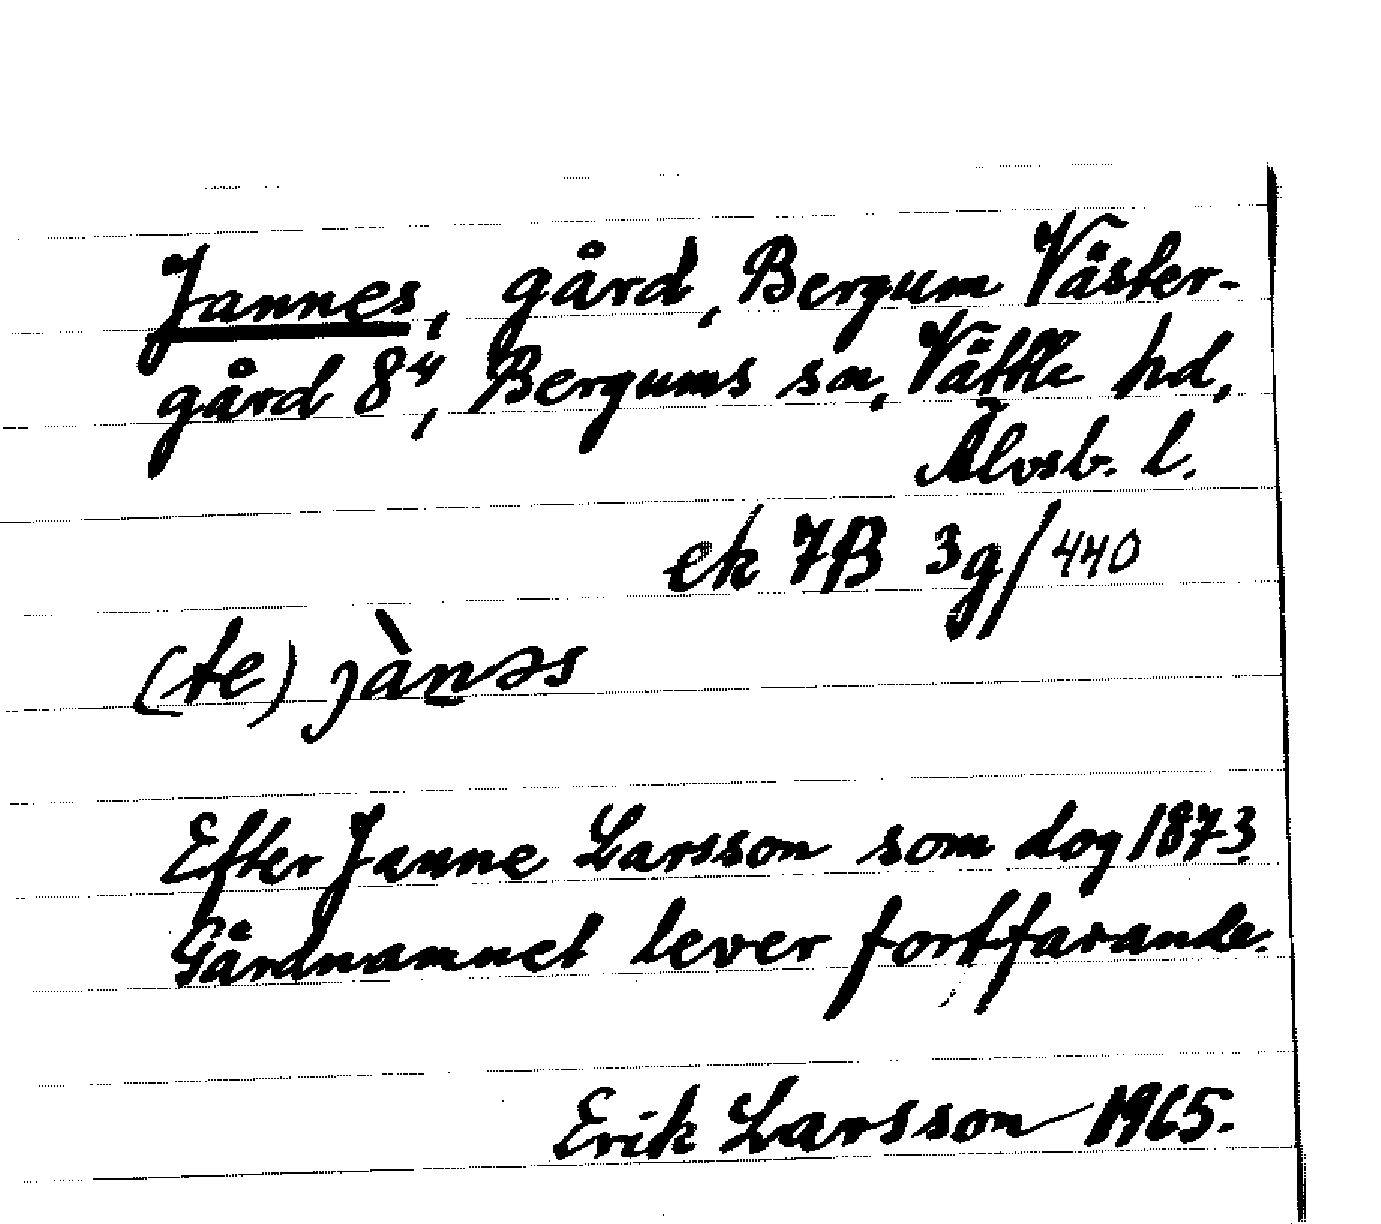 Jannes, gård, Bergum Väster-
gård 8⁴, Bergums sn, Vättle hd,
Älvsb. l.
ek 7B 3g/440
(te) jànəs
Efter Janne Larsson som dog 1873.
Gårdnamnet lever fortfarande.
Erik Larsson 1965.